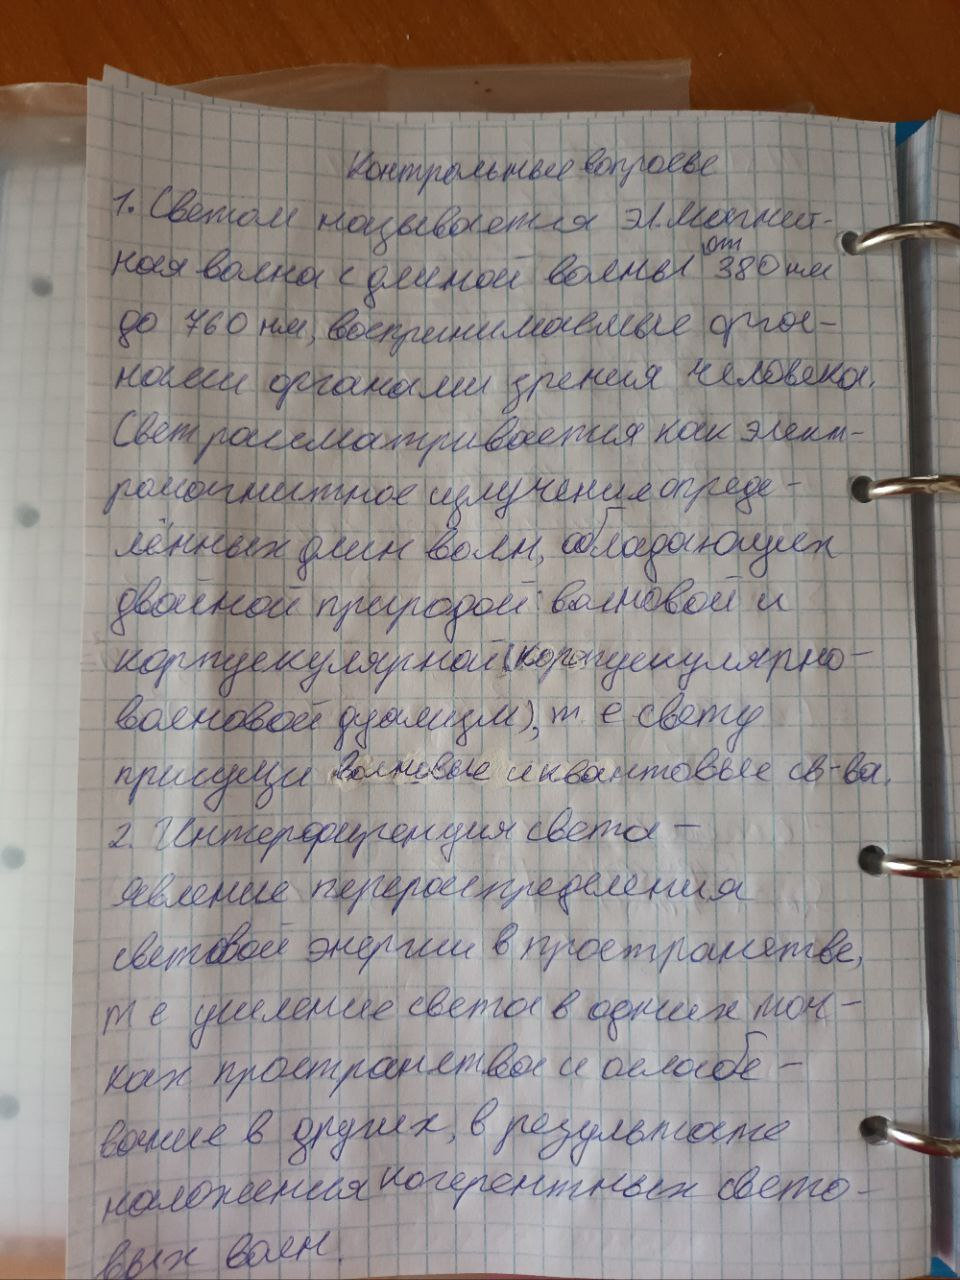 Контрольные вопросы
1. Светом называется эл.магнит-
ная волна с длиной волны от 380 нм
до 760 нм, воспринимаемые орга-
нами органами зрения человека.
Свет рассматривается как элект-
ромагнитное излучение опреде-
лённых длин волн, обладающих
двойной природой: волновой и
корпускулярной (корпускулярно-
волновой дуализм), т. е свету
присущи волновые и квантовые св-ва.
2. Интерференция света -
явление перераспределения
световой энергии в пространстве,
т е усиление света в одних точ-
ках пространства и ослабе-
вание в других, в результате
наложения когерентных свето-
вых волн.